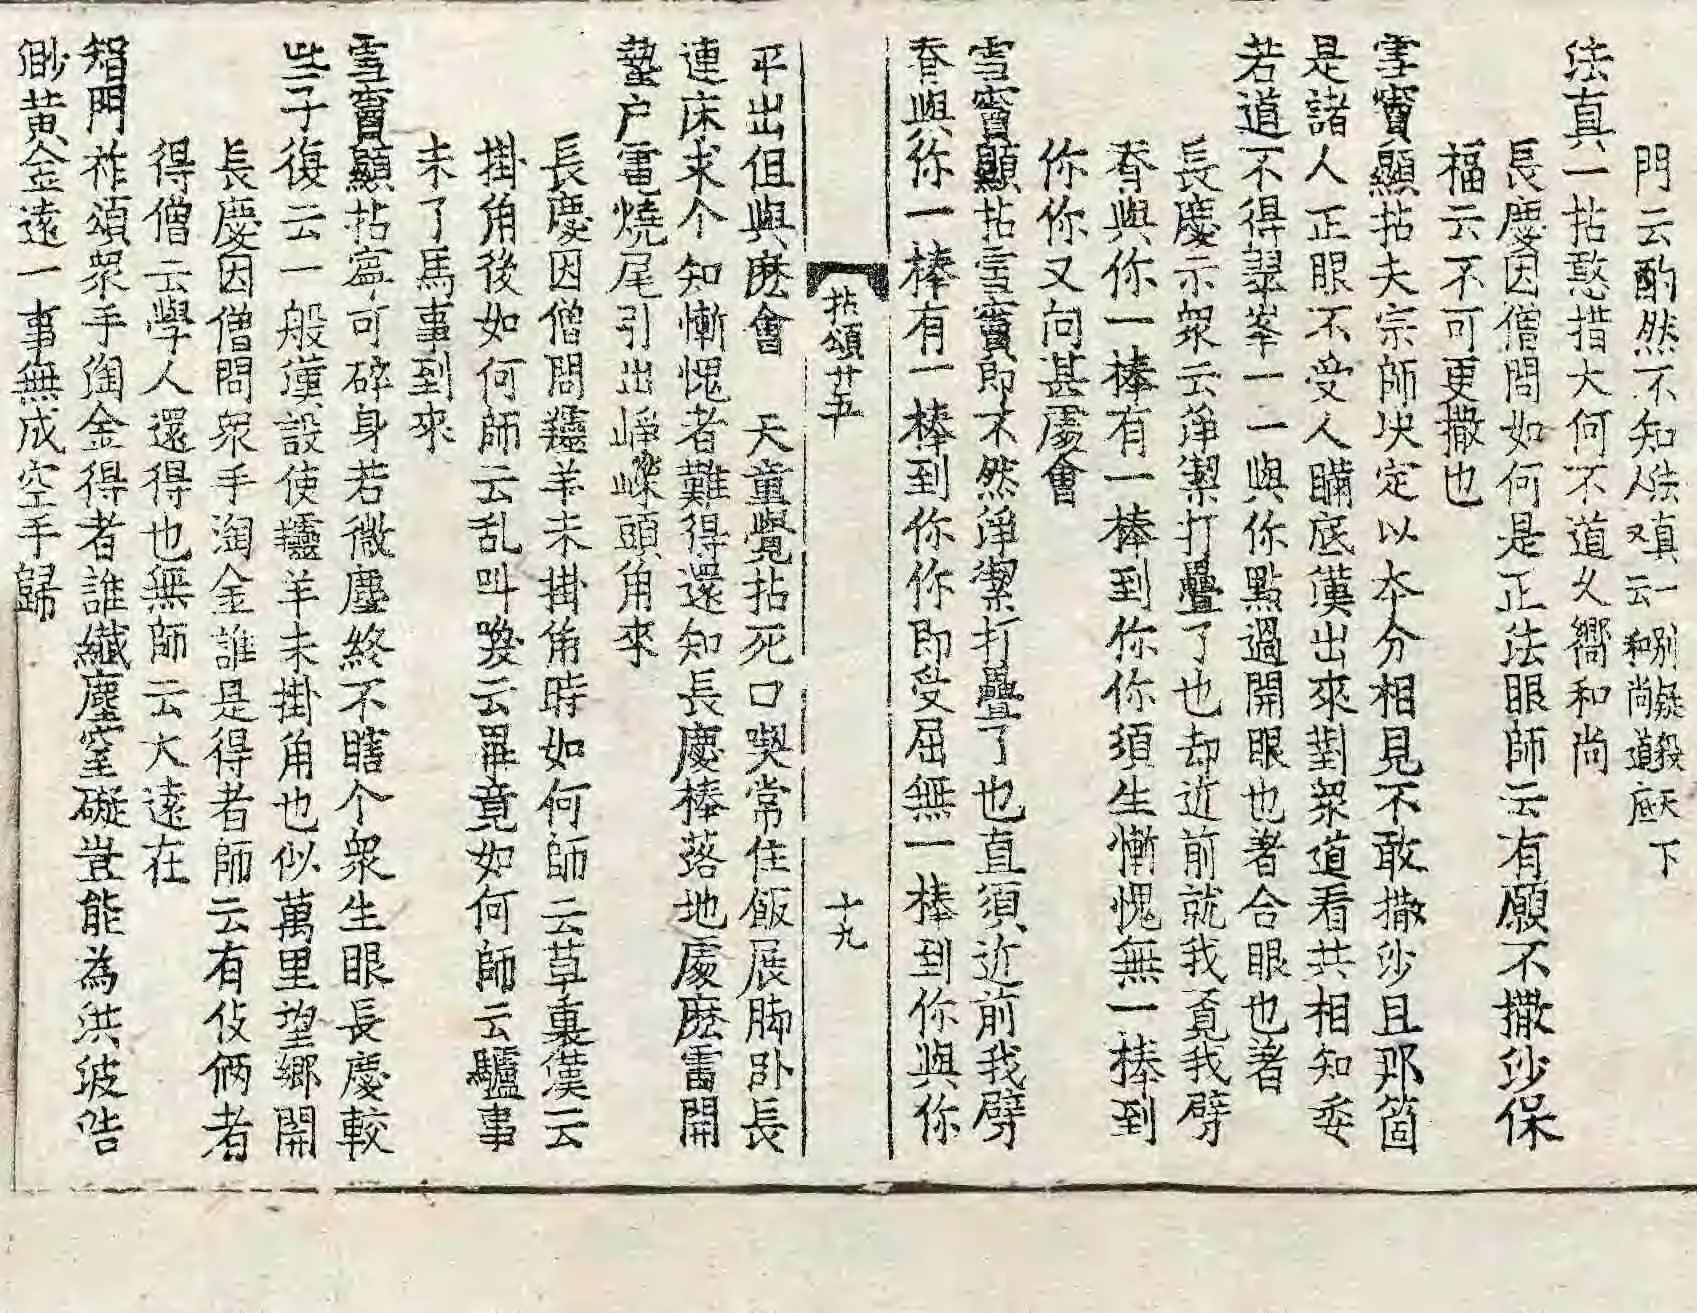 門云酌然不知法真一別疑殺天下
人又云和尚道底
法真一拈憨措大何不道久嚮和尚
長慶因僧問如何是正法眼師云有願不撒沙保
福云不可更撒也
雪竇顯拈夫宗師決定以本分相見不敢撒沙且那箇
是諸人正眼不受人瞞底漢出來對眾道看共相知委
若道不得翠峯一一與你點過開眼也著合眼也著
長慶示眾云淨潔打疊了也却近前就我覔我劈
脊與你一棒有一棒到你你須生慚愧無一棒到
你你又向甚處會
雪竇顯拈雪竇即不然淨潔打疊了也直須近前我劈
脊與你一棒有一棒到你你即受屈無一棒到你與你
拈頌廿五
十九
平出但與麽會
天童覺拈死口喫常住飯展脚卧長
連床求个知慚愧者難得還知長慶棒落地處麽雷開
蟄户電燒尾引出崢嶸頭角來
長慶因僧問羺羊未掛角時如何師云草裏漢云
掛角後如何師云乱叫喚云畢竟如何師云驢事
未了馬事到來
雪竇顯拈寧可碎身若微塵終不瞎个眾生眼長慶較
些子復云一般漢設使羺羊未掛角也似萬里望鄉關
長慶因僧問眾手淘金誰是得者師云有伎倆者
得僧云學人還得也無師云大遠在
智門祚頌眾手淘金得者誰纎塵窒礙豈能為洪波浩
渺黃金遠一事無成空手歸